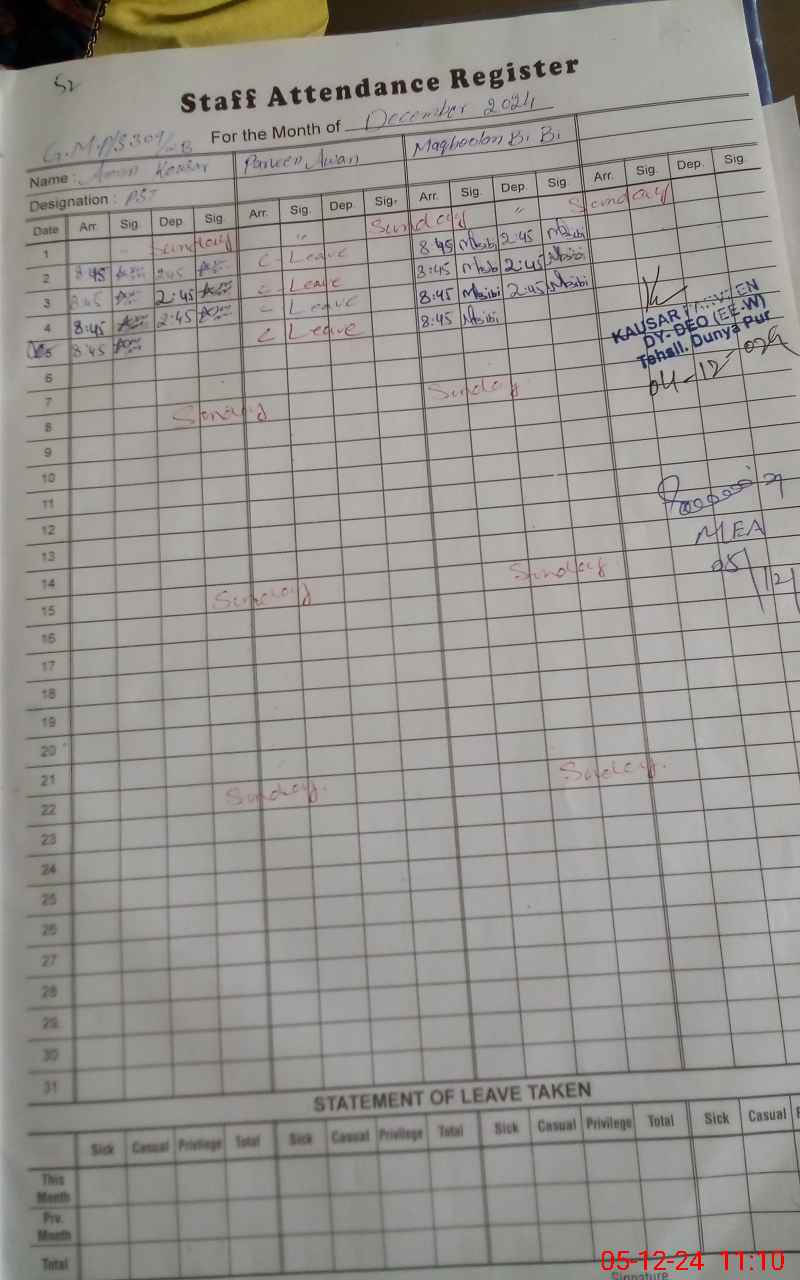 52
Staff Attendance Register
For the Month of December 2024
Name : Kousar Parveen Awan Maqboolan Bi Bi
Designation : PST
Date Arr. Sig. Dep. Sig. Arr. Sig. Dep. Sig. Arr. Sig. Dep. Sig. Arr. Sig. Dep. Sig.
1 Sunday " Sunday " Sunday
2 8:45 2:45 C-Leave 8:45 Mbibi 2:45 Mbibi
3 8:45 2:45 C-Leave 8:45 Mbibi 2:45 Mbibi
4 8:45 2:45 C-Leave 8:45 Mbibi 2:45 Mbibi
5 8:45 C Leave 8:45 Mbibi
KAUSAR PARVEEN
DY-DEO (EE.W)
Tehsil. Dunya Pur
04-12-024
6
7
8 Sunday Sunday
9
10
11
12
MEA
05/12/
13
14
15 Sunday Sunday
16
17
18
19
20
21
22 Sunday. Sunday.
23
24
25
26
27
28
29
30
31
STATEMENT OF LEAVE TAKEN
Sick Casual Privilege Total Sick Casual Privilege Total Sick Casual Privilege Total Sick Casual
This Month
Prv. Month
Total
05-12-24 11:10
Signature